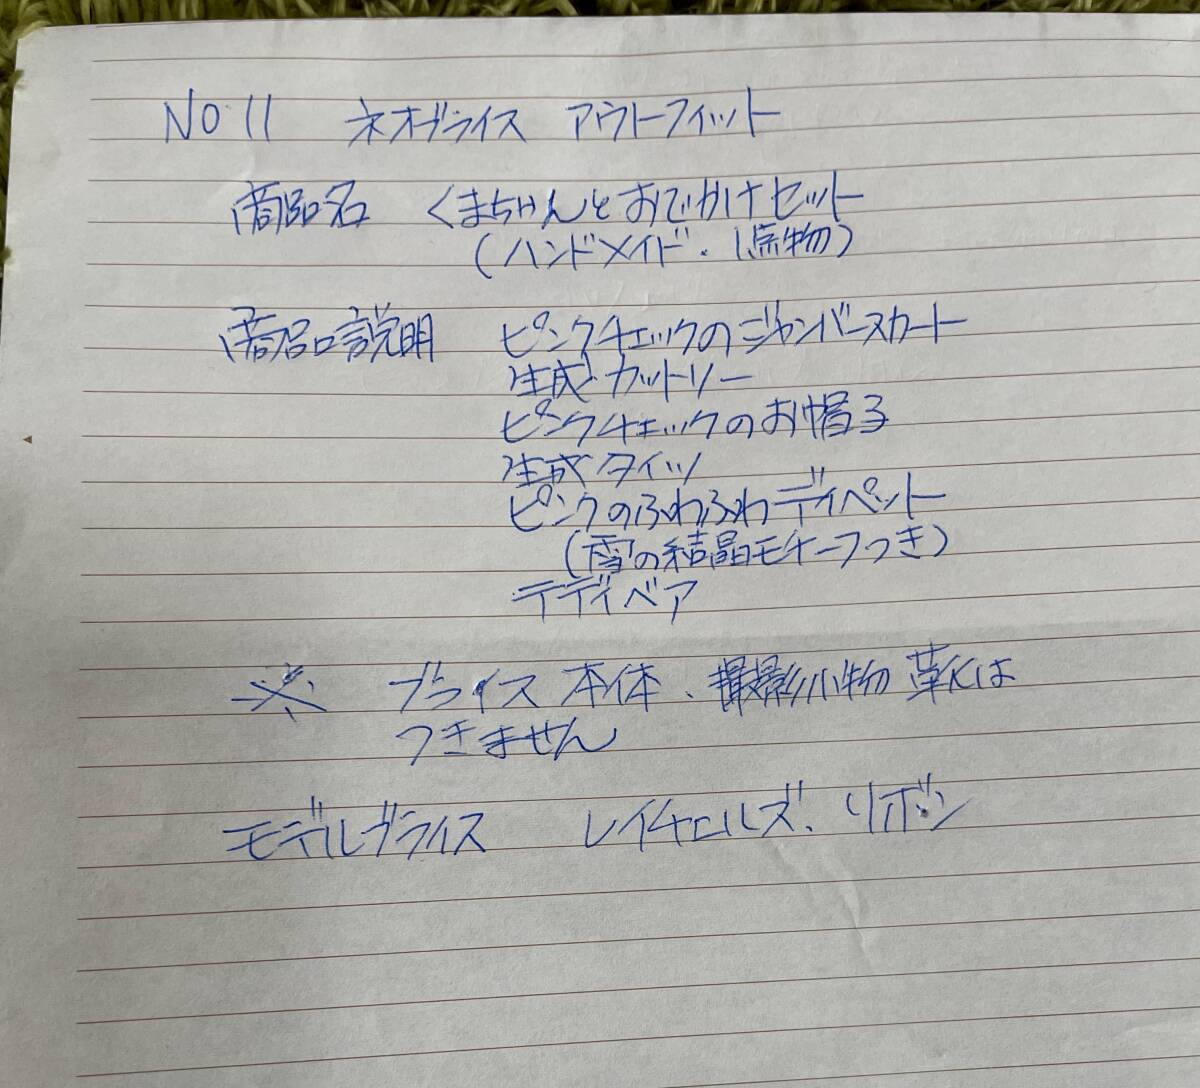 NO 11 ネオブライス アウトフィット
商品名 くまちゃんとおでかけセット
(ハンドメイド.1点物)
商品説明 ピンクチェックのジャンバースカート
生成カットソー
ピンクチェックのお帽子
生成タイツ
ピンクのふわふわティペット
(雪の結晶モチーフつき)
テディベア
※ ブライス本体、撮影小物 靴は
つきません
モデルブライス レイチェルズ.リボン